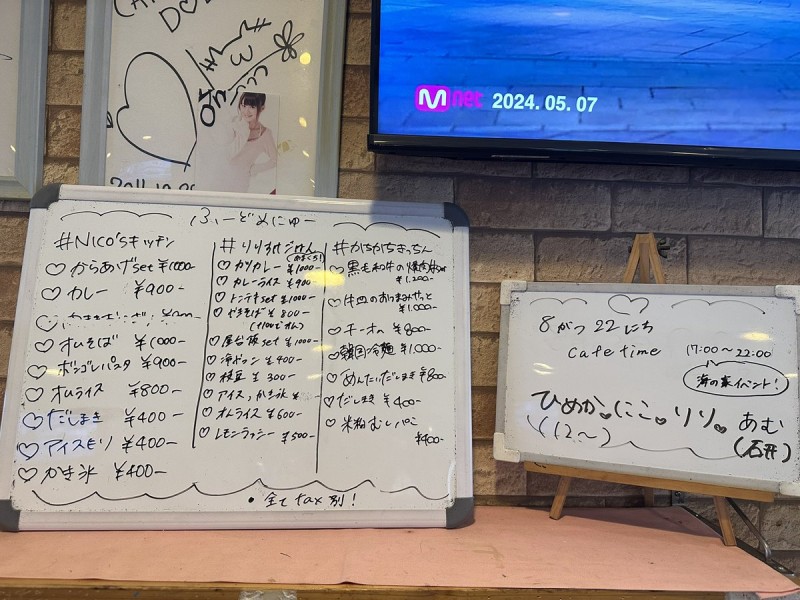 DO
2024. 05. 07
ふーどめにゅー
#NICO'sキッチン
♡からあげset ¥1000-
♡カレー ¥900-
♡オムそば ¥1000-
♡ボンゴレパスタ ¥900-
♡オムライス ¥800-
♡だしまき ¥400-
♡アイスモリ ¥400-
♡かき氷 ¥400-
♡カツカレー ¥1000-
♡カレーライス ¥900-
♡トンテキset ¥1000-
♡やきそば ¥800-
♡屋台飯set ¥1000-
♡枝豆 ¥300-
♡アイス、かき氷
♡オムライス ¥600-
♡レモンラッシー ¥500-
♡黒毛和牛の
¥1,200-
¥1.000-
¥800-
♡韓国冷麺 ¥1.000-
♡めんたいだしまき ¥800-
♡だし巻き ¥400-
♡米粉むしパン
¥400-
・全てtax別!
8がつ22にち
cafe time 17:00~22:00
海の家イベント!
ひめか。にこ。リリ。あむ
(12~)
(石井)